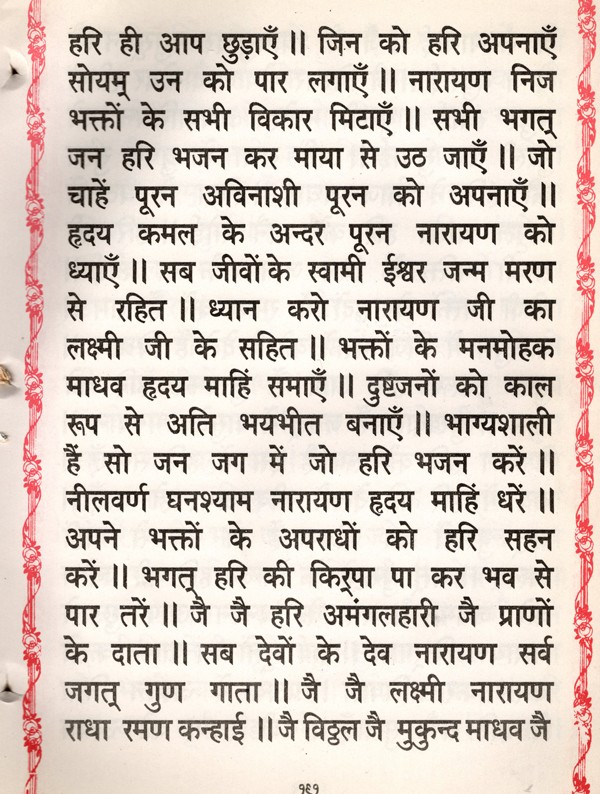 हरि ही आप छुड़ाएँ ॥ जिन को हरि अपनाएँ
सोयम् उन को पार लगाएँ ॥ नारायण निज
भक्तों के सभी विकार मिटाएँ ॥ सभी भगत्
जन हरि भजन कर माया से उठ जाएँ ॥ जो
चाहें पूरन अविनाशी पूरन को अपनाएँ ॥
हृदय कमल के अन्दर पूरन नारायण को
ध्याएँ ॥ सब जीवों के स्वामी ईश्वर जन्म मरण
से रहित ॥ ध्यान करो नारायण जी का
लक्ष्मी जी के सहित ॥ भक्तों के मनमोहक
माधव हृदय माहिं समाएँ ॥ दुष्टजनों को काल
रूप से अति भयभीत बनाएँ ॥ भाग्यशाली
हैं सो जन जग में जो हरि भजन करें ॥
नीलवर्ण घनश्याम नारायण हृदय माहिं धरें ॥
अपने भक्तों के अपराधों को हरि सहन
करें ॥ भगत् हरि की किर्पा पा कर भव से
पार तरें ॥ जै जै हरि अमंगलहारी जै प्राणों
के दाता ॥ सब देवों के देव नारायण सर्व
जगत् गुण गाता ॥ जै जै लक्ष्मी नारायण
राधा रमण कन्हाई ॥ जै विठ्ठल जै मुकुन्द माधव जै
१९१